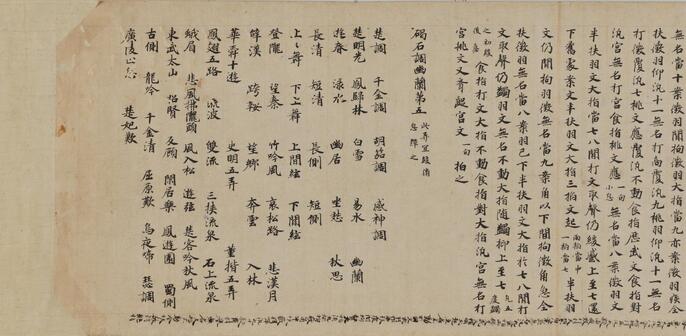 無名當十案徵羽開拘徵羽大指當九亦案徵羽疾全
扶徵羽仰汎十一無名打商應汎九桃羽仰汎十一無名
打徵應汎七桃文應應汎不動食指應武文食指對
汎宮無名打宮食指桃文應 一句 小息 無名當八案徵羽文
半扶羽文大指當七八間打文取聲仍緩感上至七還
下舊豪案文半扶羽文大指三拍文起 兩拍當中 一拍當七 半扶羽
文仍開拘羽徵無名當九案角以下開拘徵角急全
扶徵羽無名當八案羽已下半扶羽文大指於七八間打
文取聲仍 羽文無名不動大指隨 抑上至七
之初緩 後急 食指打文大指不動食指對大指汎宮無名打
宮桃文文齊 宮文 一句 拍之
碣石調幽蘭第五 此弄宜緩消 息彈之
楚調 千金調 胡笳調 感神調
楚明光 鳳歸林 白雪 易水 幽蘭
遊春 淥水 幽居 坐愁 秋思
長清 短清 長側 短側
上上舞 下上舞 上間絃 下間絃
登隴 望秦 竹吟風 哀松路 悲漢月
辭漢 跨鞍 望鄉 奔雲 入林
華舜十遊 史明五弄 董揩五弄
鳳翅五路 流波 雙流 三挾流泉 石上流泉
蛾眉 悲風拂隴頭 風入松 遊絃 楚客吟秋風
東武太山 招賢 反顧 閑居樂 鳳遊園 蜀側
古側 龍吟 千金清 屈原歎 烏夜啼 瑟調
廣陵止息 楚妃歎